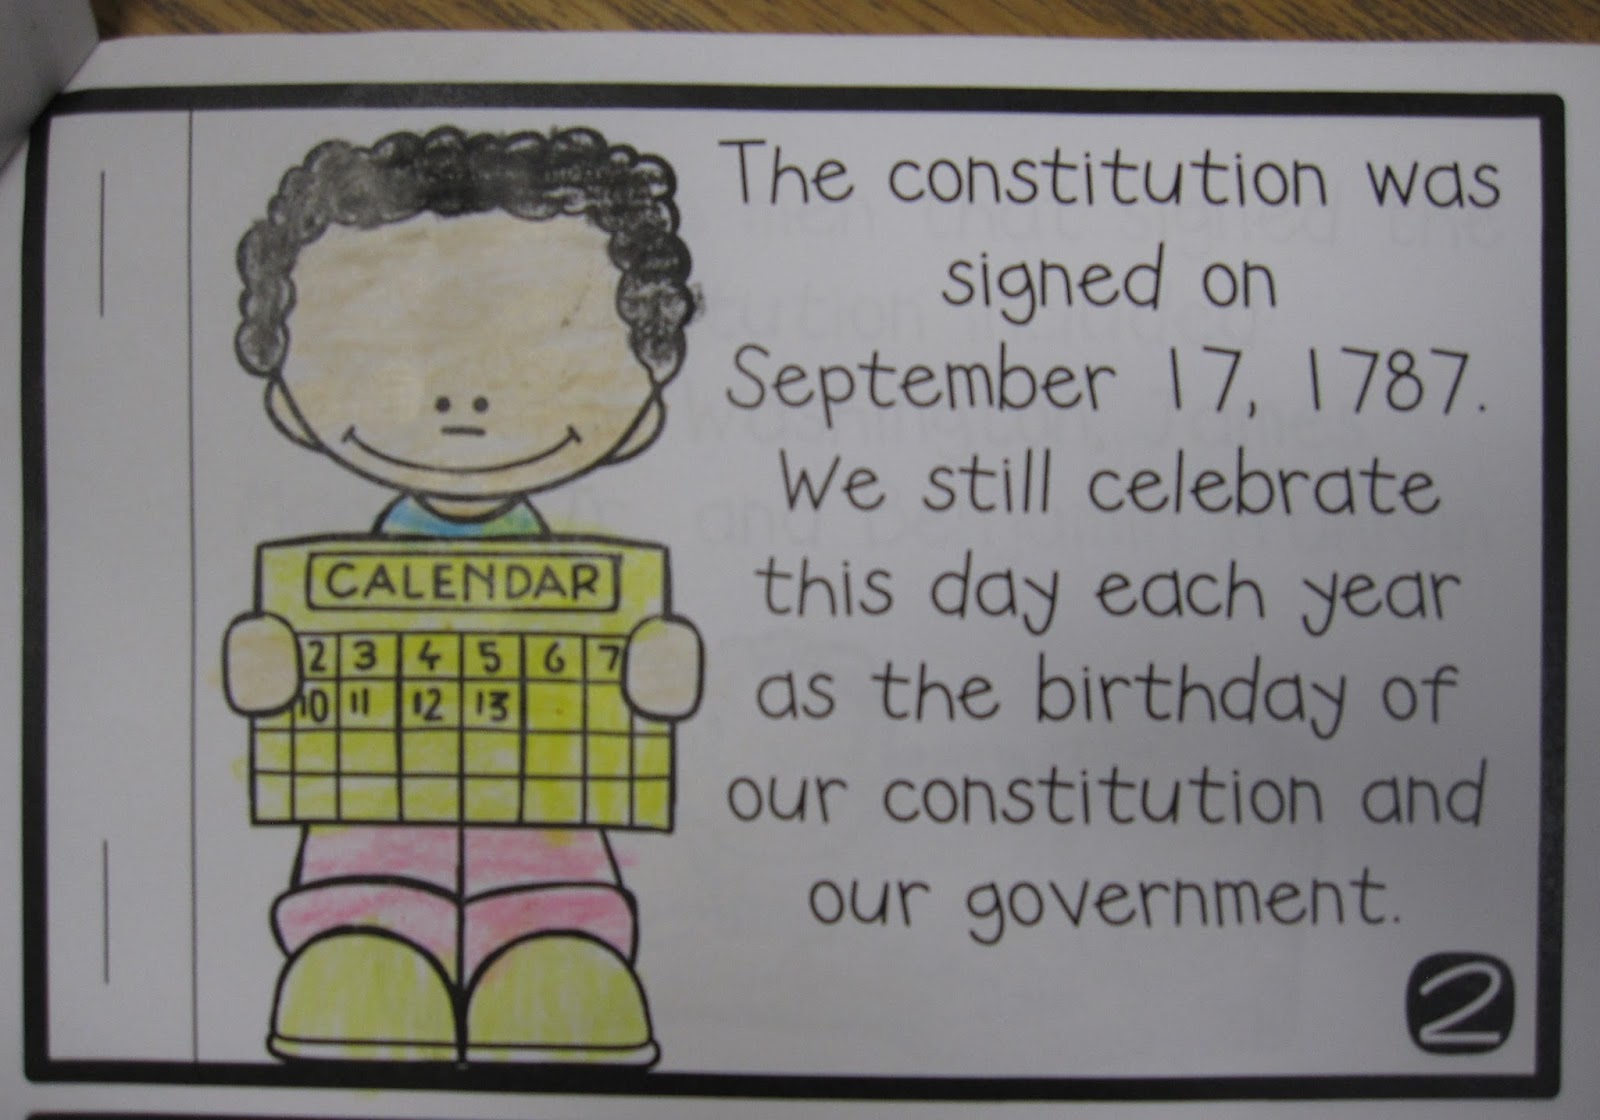 The constitution was
signed on
September 17, 1787.
We still celebrate
this day each year
as the birthday of
our constitution and
our government.
CALENDAR
2 3 4 5 6 7
10 11 12 13
2